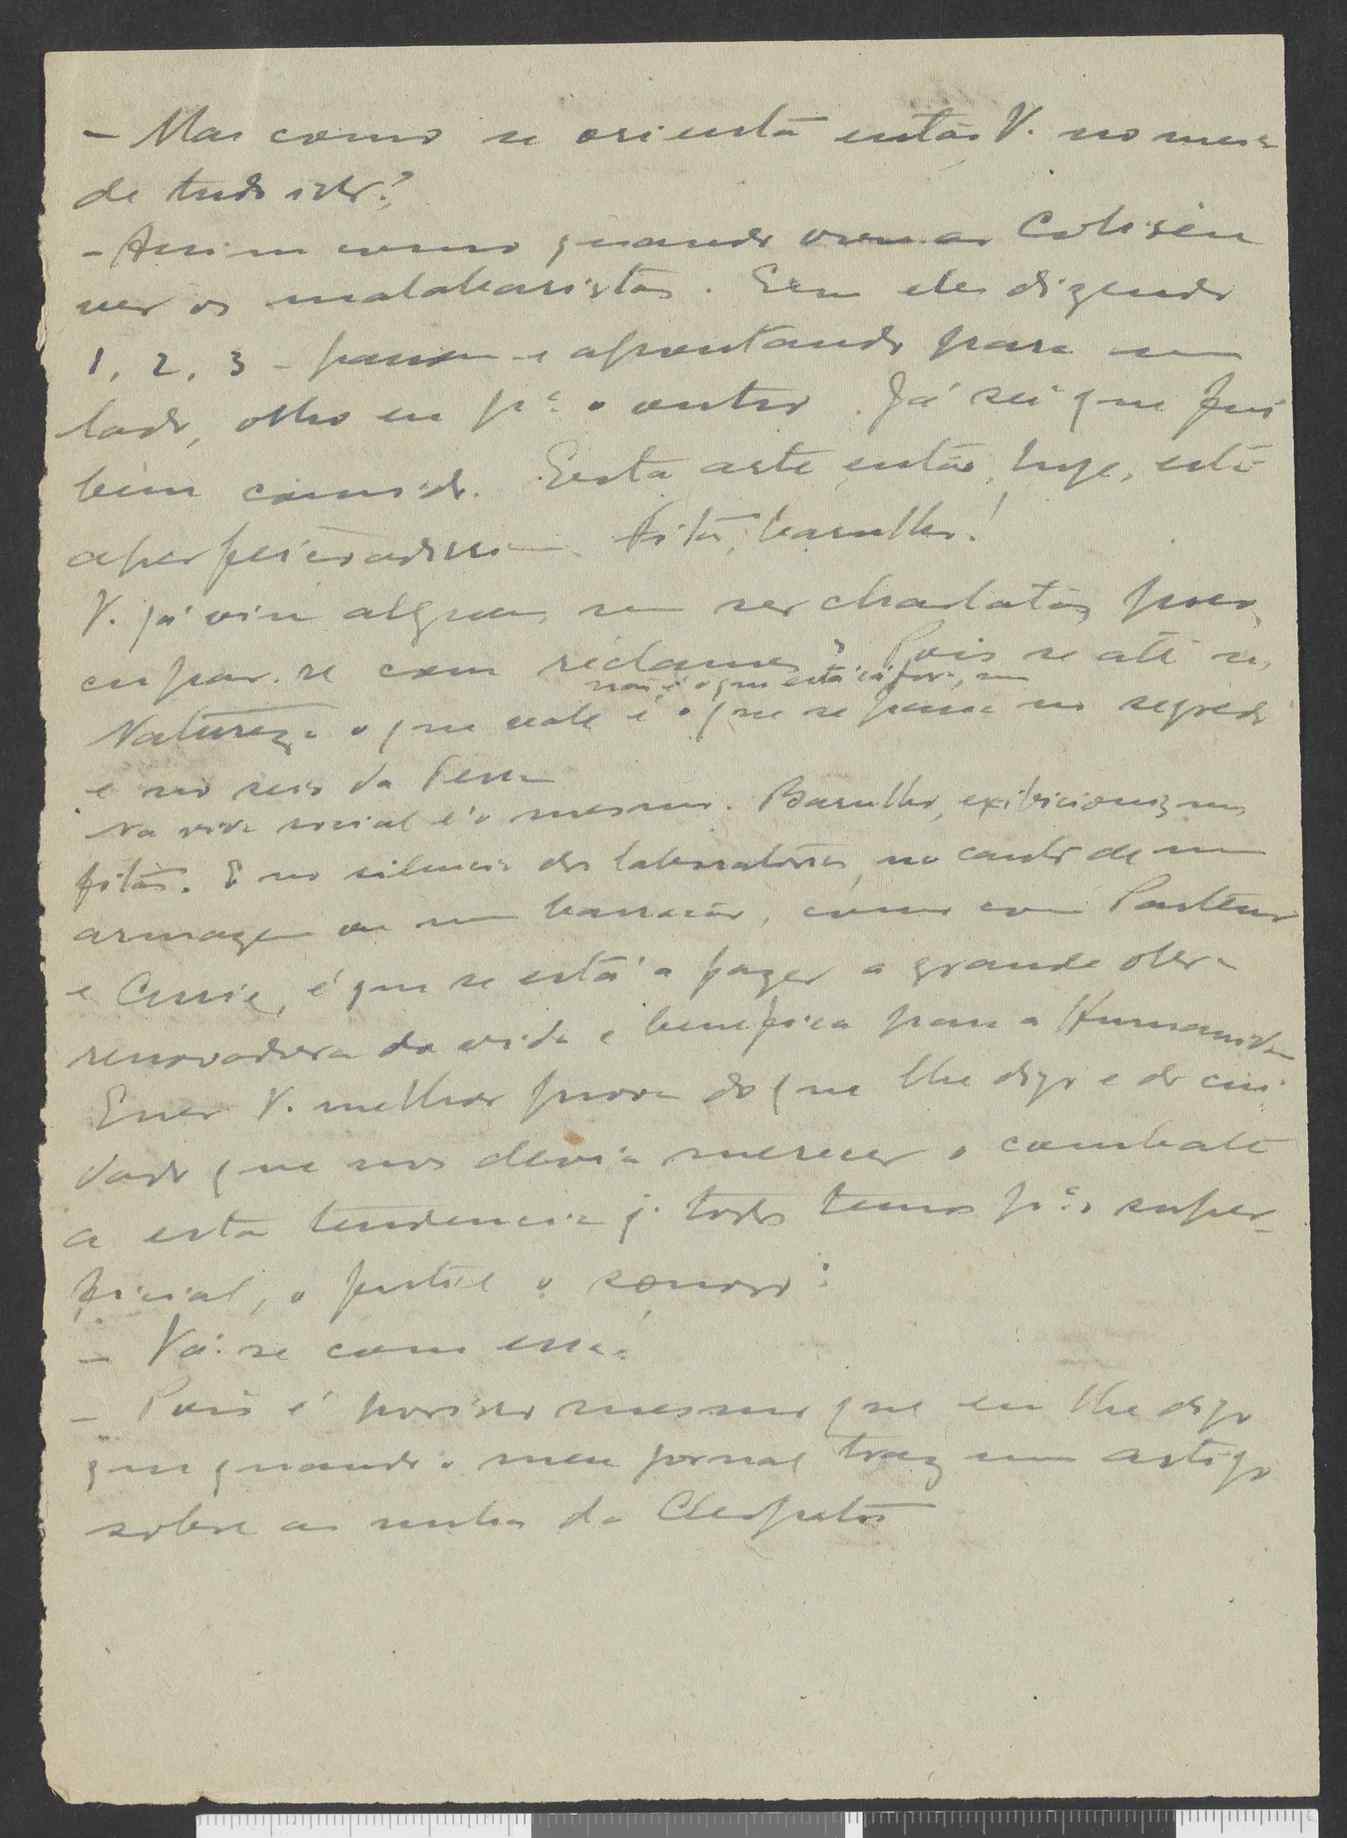 - Mas como se orienta então V. no meio
de tudo isto?
- Assim como quando vou ao Coliseu
ver os malabaristas. Em eles dizendo
1, 2, 3 - passou - e apontando para um
lado, olho eu pª o outro. Já sei que fui
bem comido. Esta arte então, hoje, está
aperfeiçoadissima. Fita, barulho!
V. já viu alguem sem ser charlatão preo-
cupar-se com réclames? Pois se até na
não é o que está cá fora,
Natureza o que vale é o que se passa no segredo
e no seio da Terra
Na vida social é o mesmo. Barulho, exibicionizmo,
fitas. E no silencio dos laboratorios, no canto de um
armazem ou um barracão, como com Pasteur
e Curie, é que se está a fazer a grande obra
renovadora da vida e benefica para a Humanida
Quer V. melhor prova do que lhe digo e do cui
dado que nos devia merecer o combate
a esta tendencia q. todos temos pª o super-
ficial, o futil o sonoro?
- Vá-se com essa.
- Pois é por isso mesmo que eu lhe digo
que quando o meu jornal traz um artigo
sobre as unhas da Cleopatra